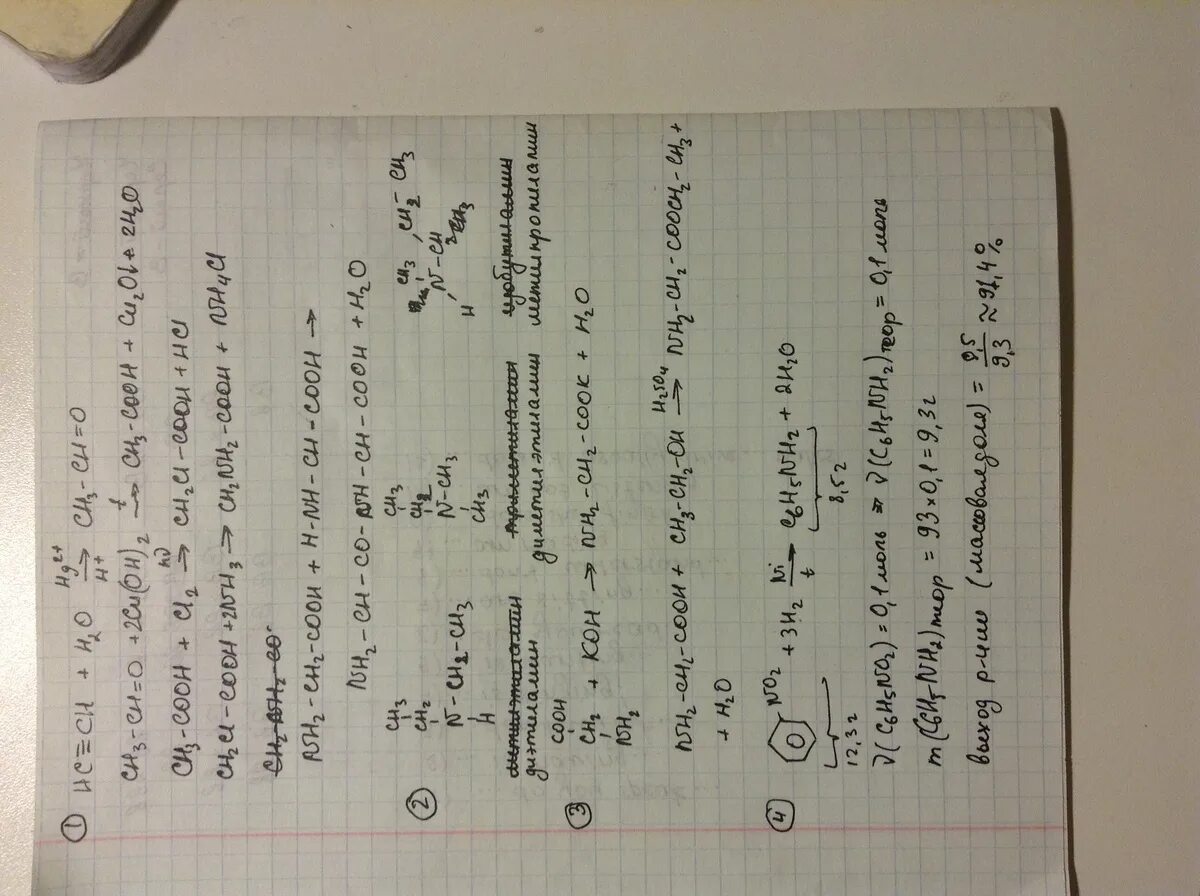 ① HC≡CH + H₂O Hg²⁺ → H⁺ CH₃-CH=O
CH₃-CH=O + 2Cu(OH)₂ t → CH₃-COOH + Cu₂O↓ + 2H₂O
CH₃-COOH + Cl₂ hν → CH₂Cl-COOH + HCl
CH₂Cl-COOH + 2NH₃ → CH₂NH₂-COOH + NH₄Cl
CH₂-NH₂-CO-
NH₂-CH₂-COOH + H-NH-CH-COOH →
NH₂-CH-CO-NH-CH-COOH + H₂O
② CH₃ CH₂ N-CH₂-CH₃ H
CH₃ CH₂ N-CH₃ CH₃
CH₃ N-CH₂-CH₂-CH₃ H
метилэтиламин триметиламин изобутиламин
диэтиламин диметилэтиламин метилпропиламин
③ COOH CH₂ NH₂ + KOH → NH₂-CH₂-COOK + H₂O
NH₂-CH₂-COOH + CH₃-CH₂-OH H₂SO₄ → NH₂-CH₂-COOCH₂-CH₃ +
+ H₂O
④ NO₂ + 3H₂ Ni → t C₆H₅NH₂ + 2H₂O
12,3 г 8,5 г
ν(C₆H₅NO₂) = 0,1 моль ⇒ ν(C₆H₅NH₂)теор = 0,1 моль
m(C₆H₅NH₂)теор = 93×0,1 = 9,3 г
выход р-ции (массовая доля) = 8,5/9,3 ≈ 91,4%